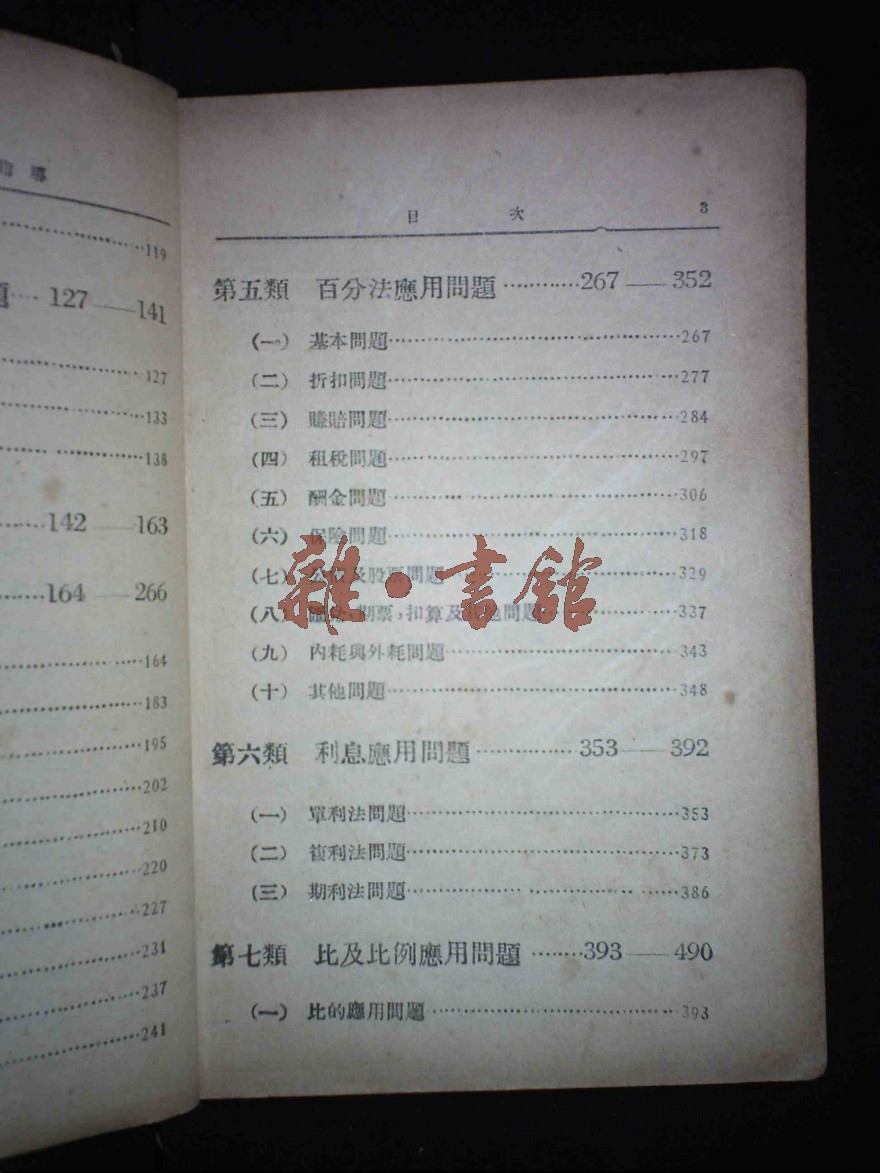 119
題… 127——141
127
133
138
142——163
164——266
164
183
195
202
210
220
227
231
237
241
目 次 3
第五類 百分法應用問題…………267——352
(一) 基本問題……267
(二) 折扣問題……277
(三) 賺賠問題……284
(四) 租稅問題……297
(五) 酬金問題……306
(六) 保險問題……318
(七) 公債及股票問題……329
(八) 匯兌,期票,扣算及其他問題……337
(九) 內耗與外耗問題……343
(十) 其他問題……348
第六類 利息應用問題…………353——392
(一) 單利法問題……353
(二) 複利法問題……373
(三) 期利法問題……386
第七類 比及比例應用問題………393——490
(一) 比的應用問題……393
雜·書館